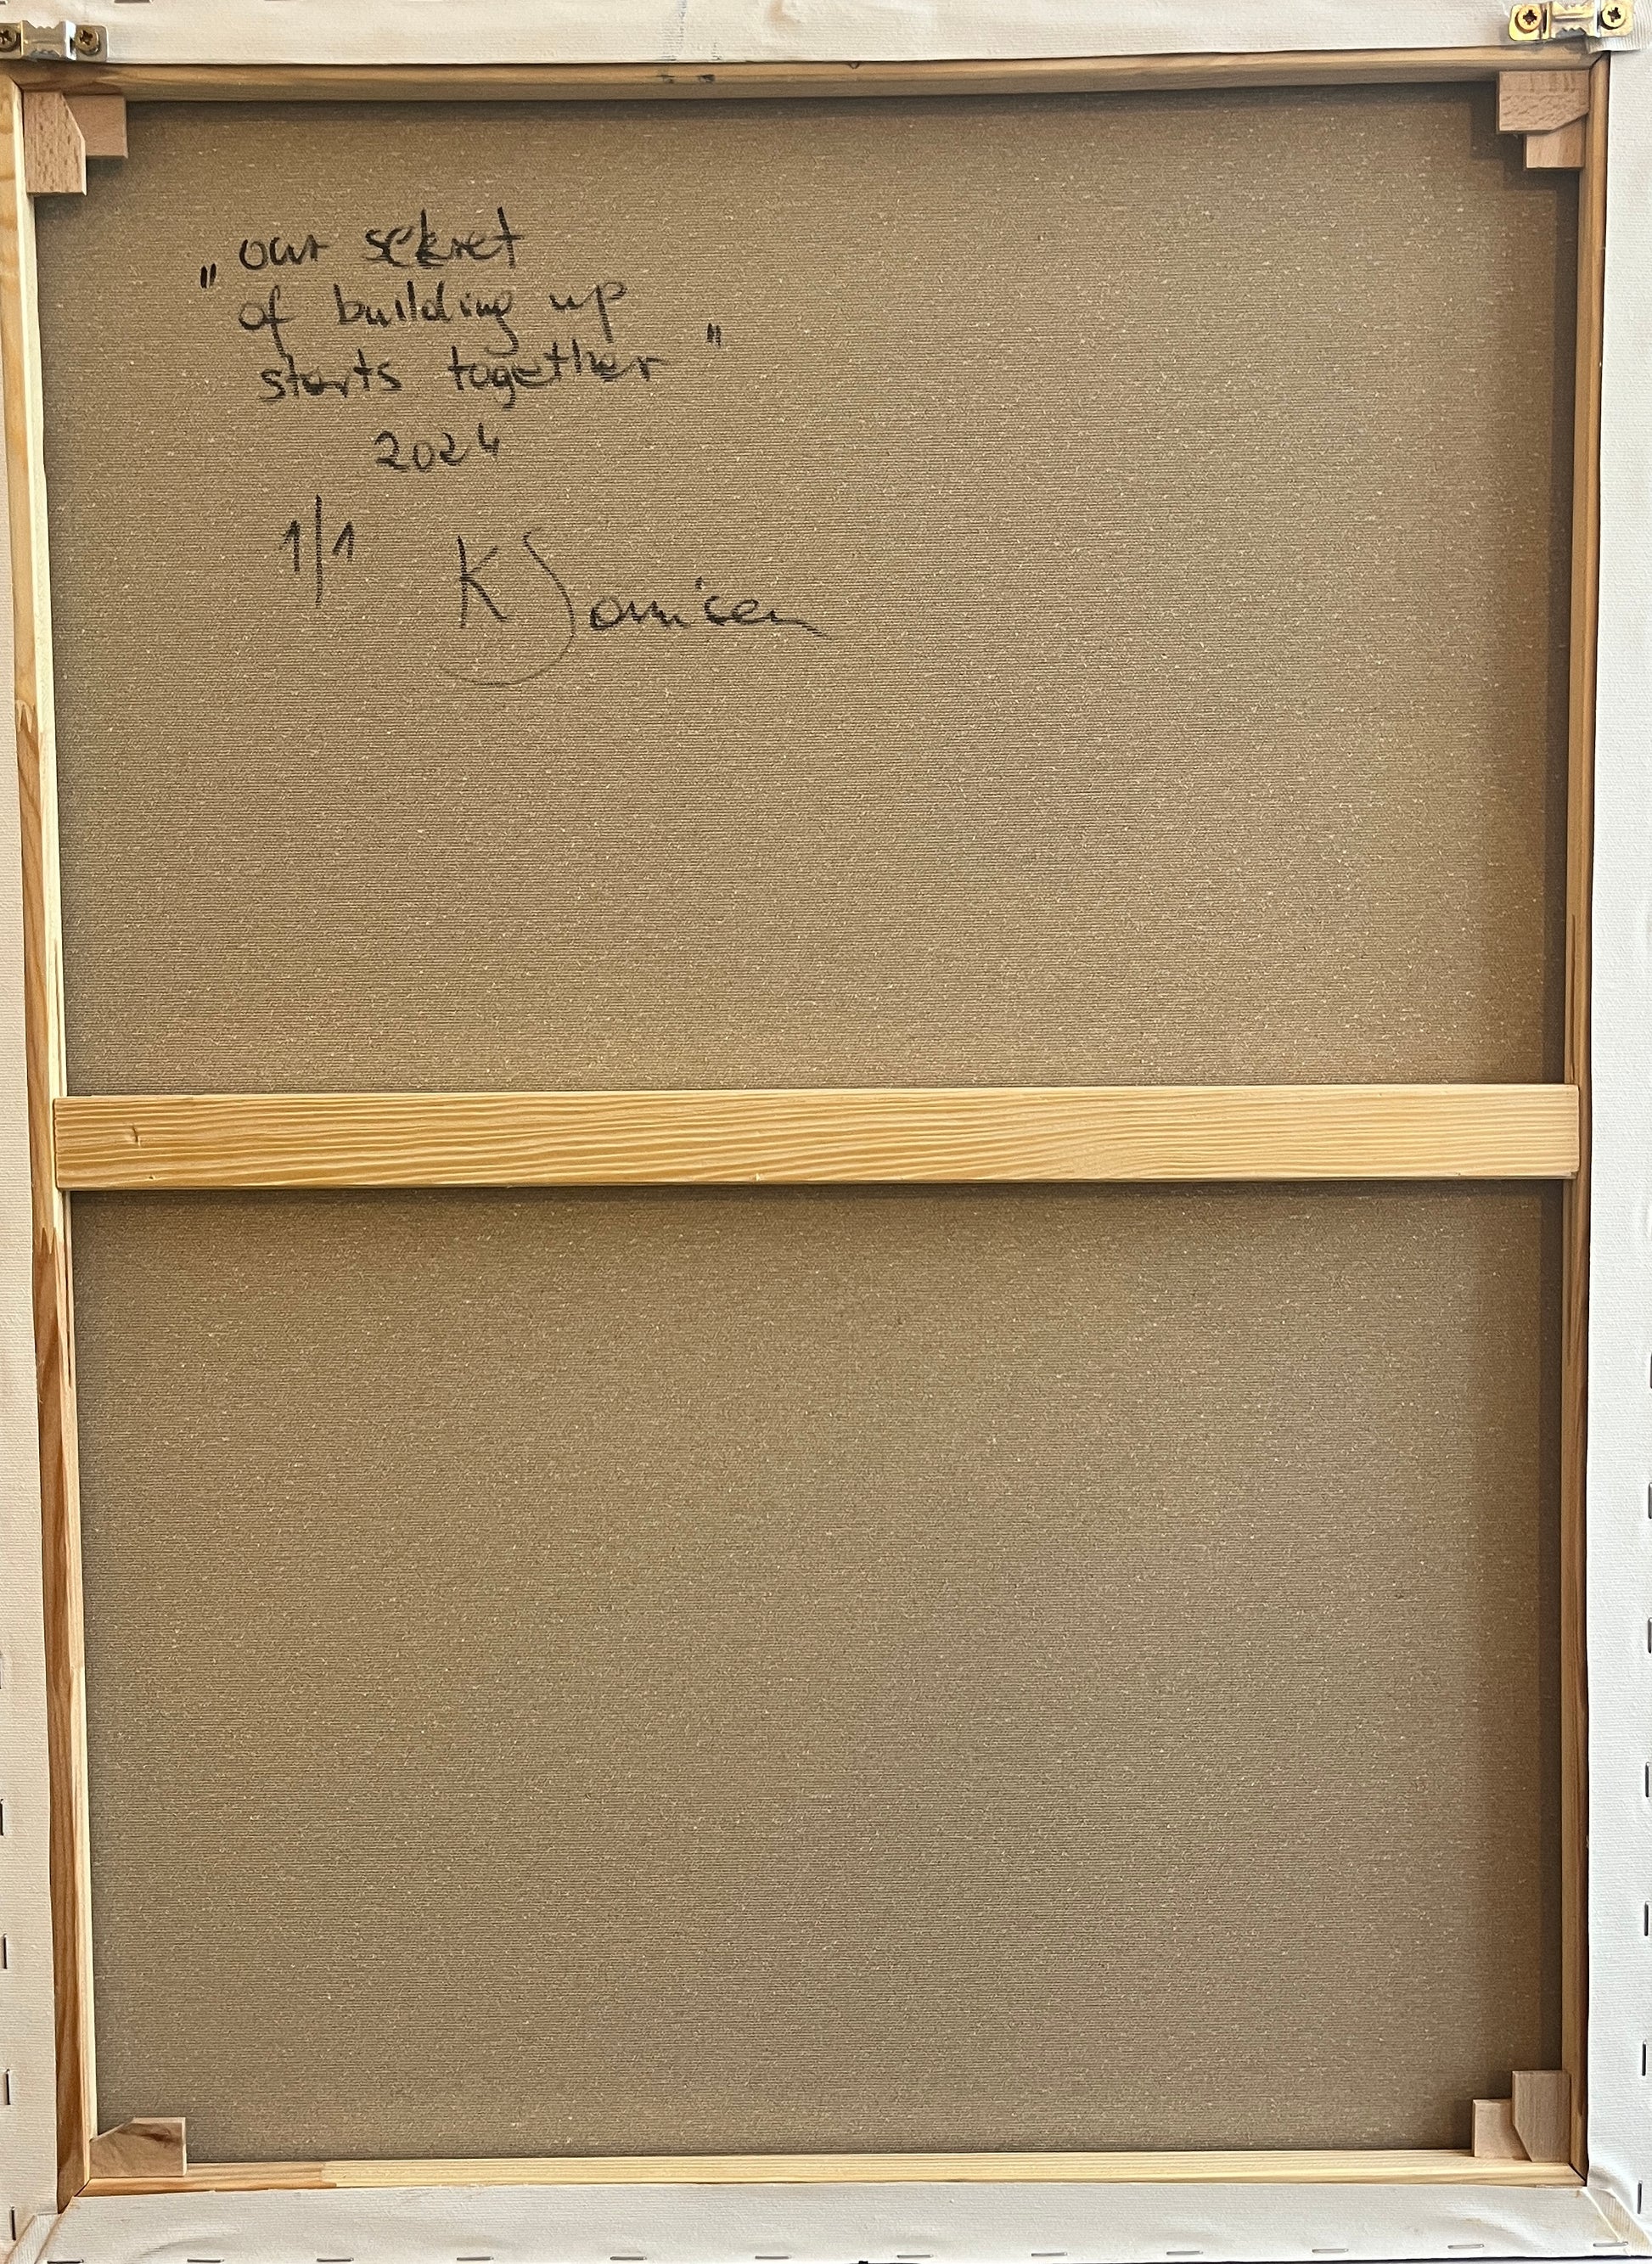 „our sekret
of building up
starts together"
2024
1/1 K